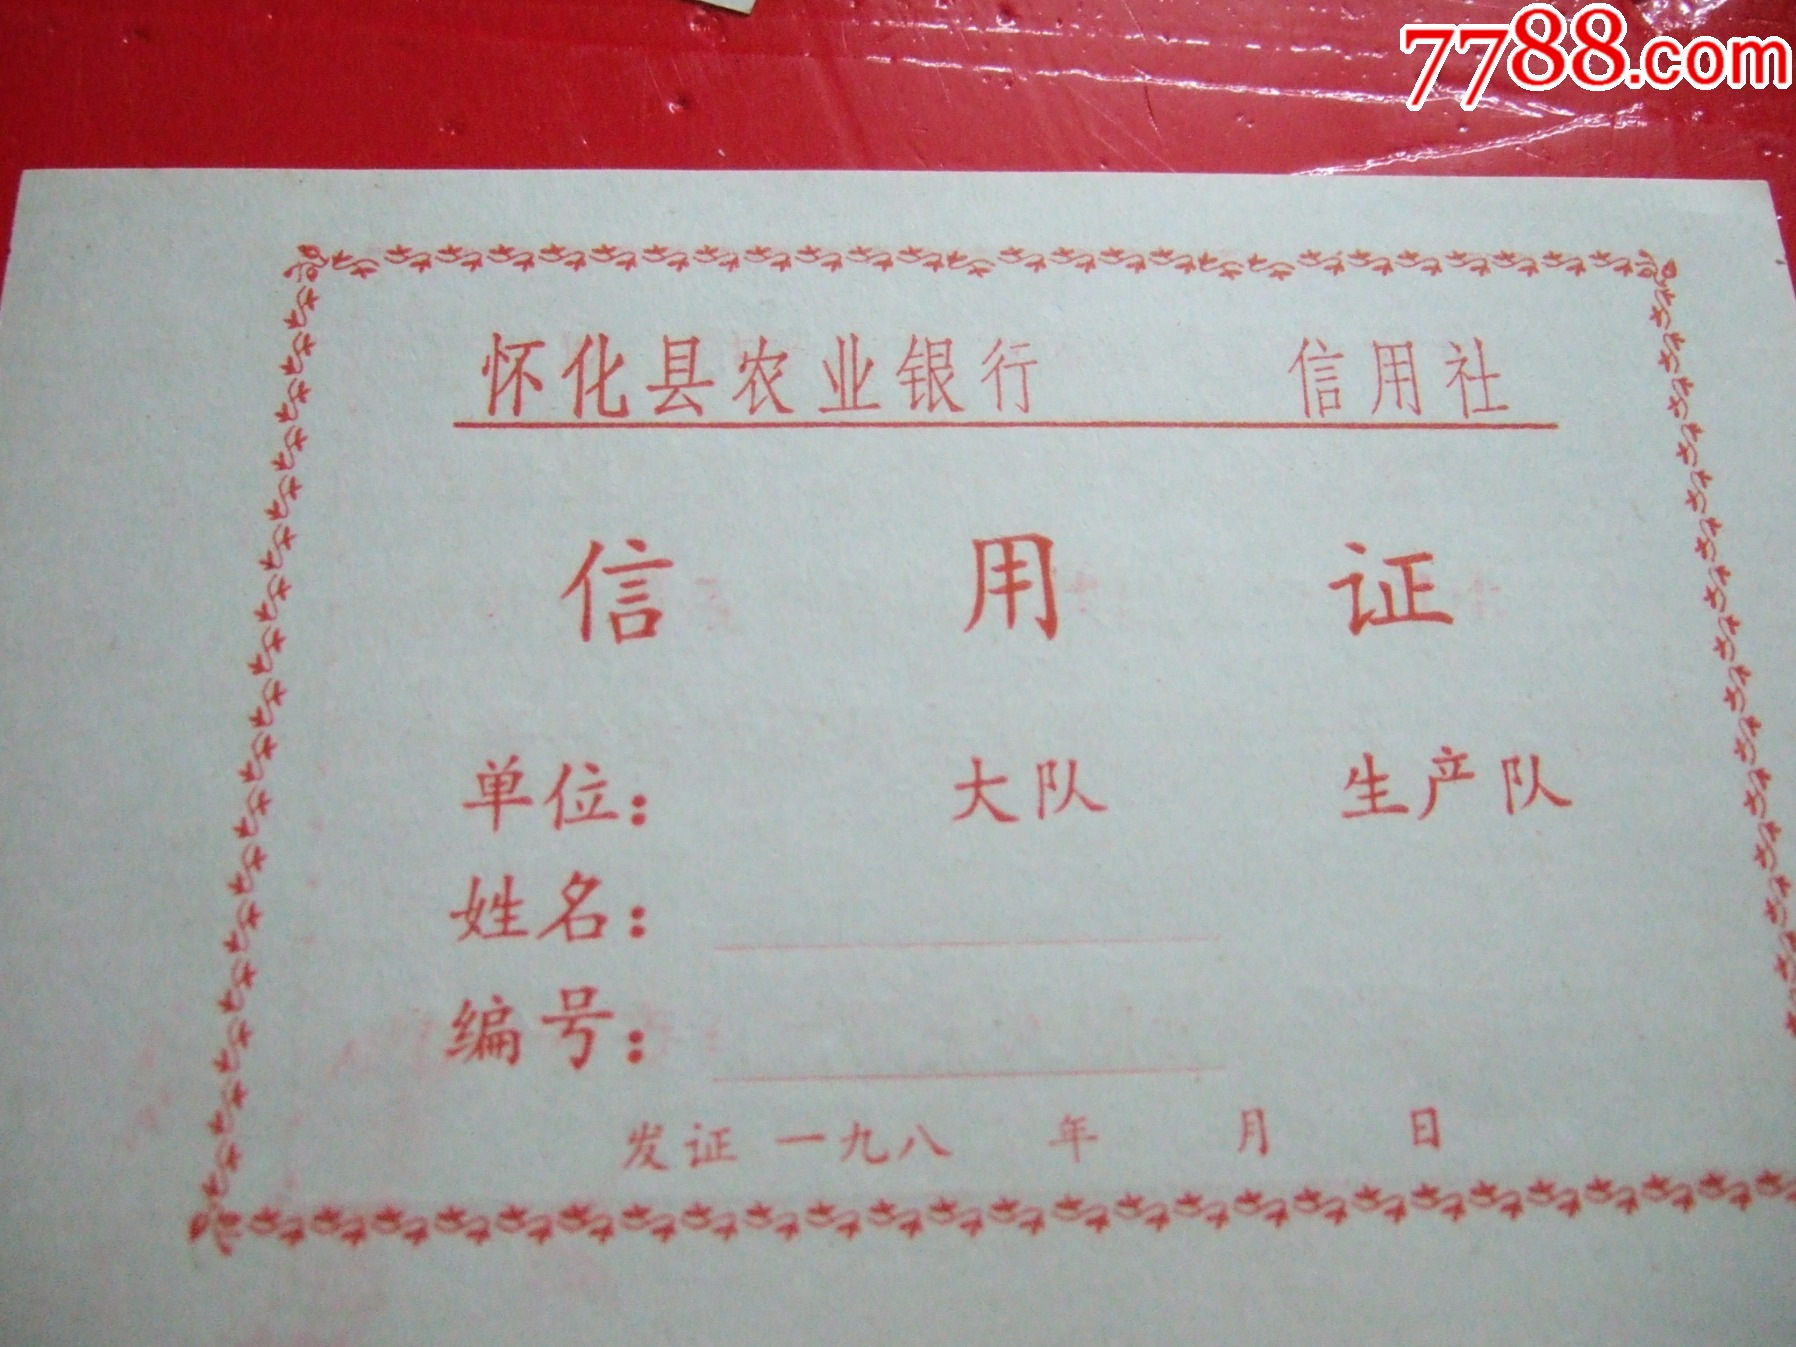 7788.com
怀化县农业银行 信用社
信用证
单位： 大队 生产队
姓名：
编号：
发证 一九八 年 月 日